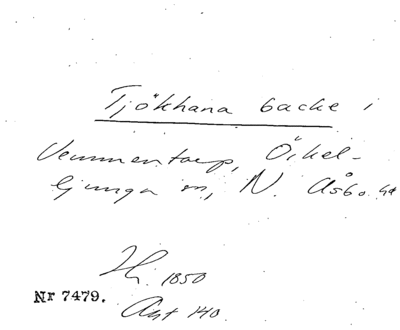 Tjökhana backe i
Vemmentorp, Örkel-
ljunga sn, N. Åsbo hd
Hi. 1850
Nr 7479.
Ant 140.